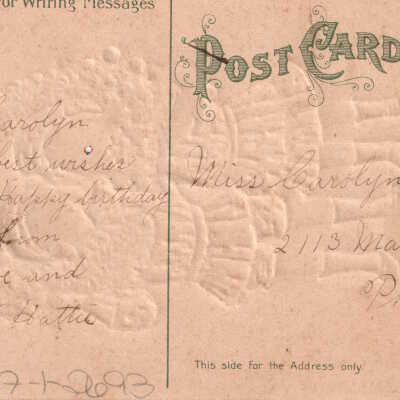 or Writing Messages
POST CARD
Carolyn
best wishes
Happy birthday
from
e and
Hattie
Miss Carolyn
2113 Ma
P
This side for the Address only